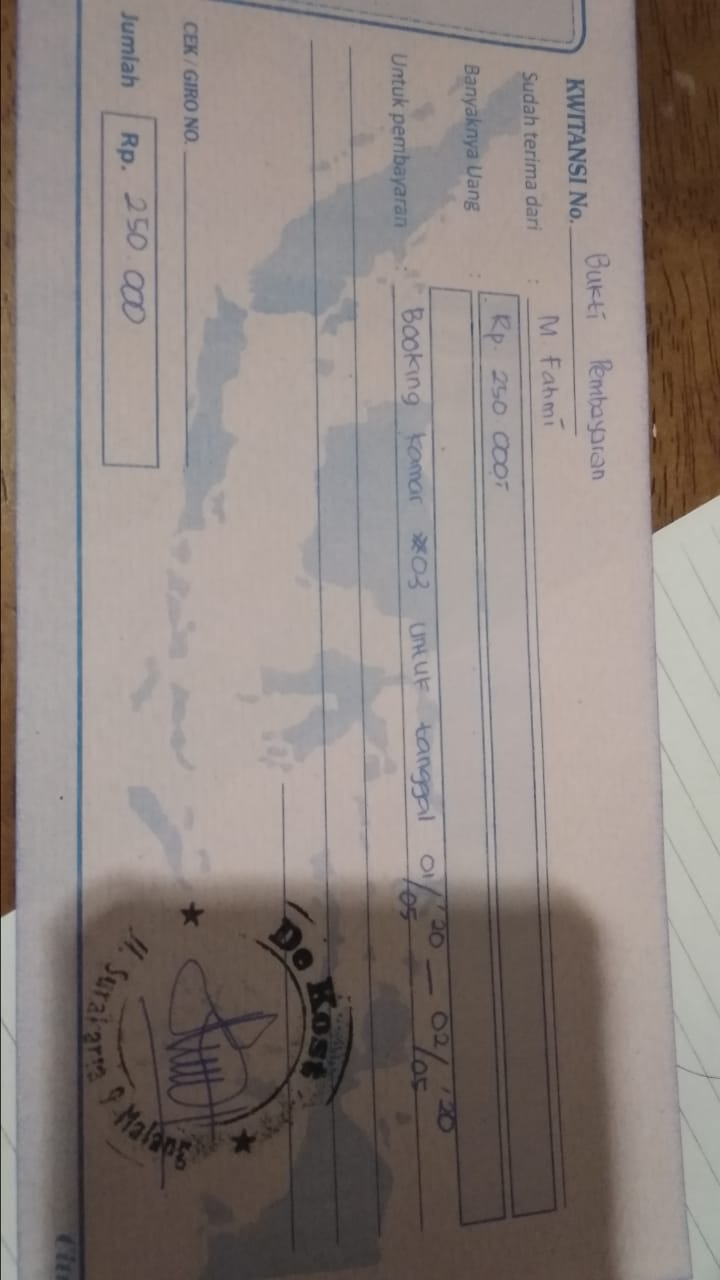 KWITANSI No. Bukti Pembayaran
Sudah terima dari : M Fahmi
Banyaknya Uang : Rp. 250.000,-
Untuk pembayaran : Booking kamar #03 untuk tanggal 01/05 '20 — 02/05 '20
CEK / GIRO NO.
Jumlah Rp. 250.000
De Kost